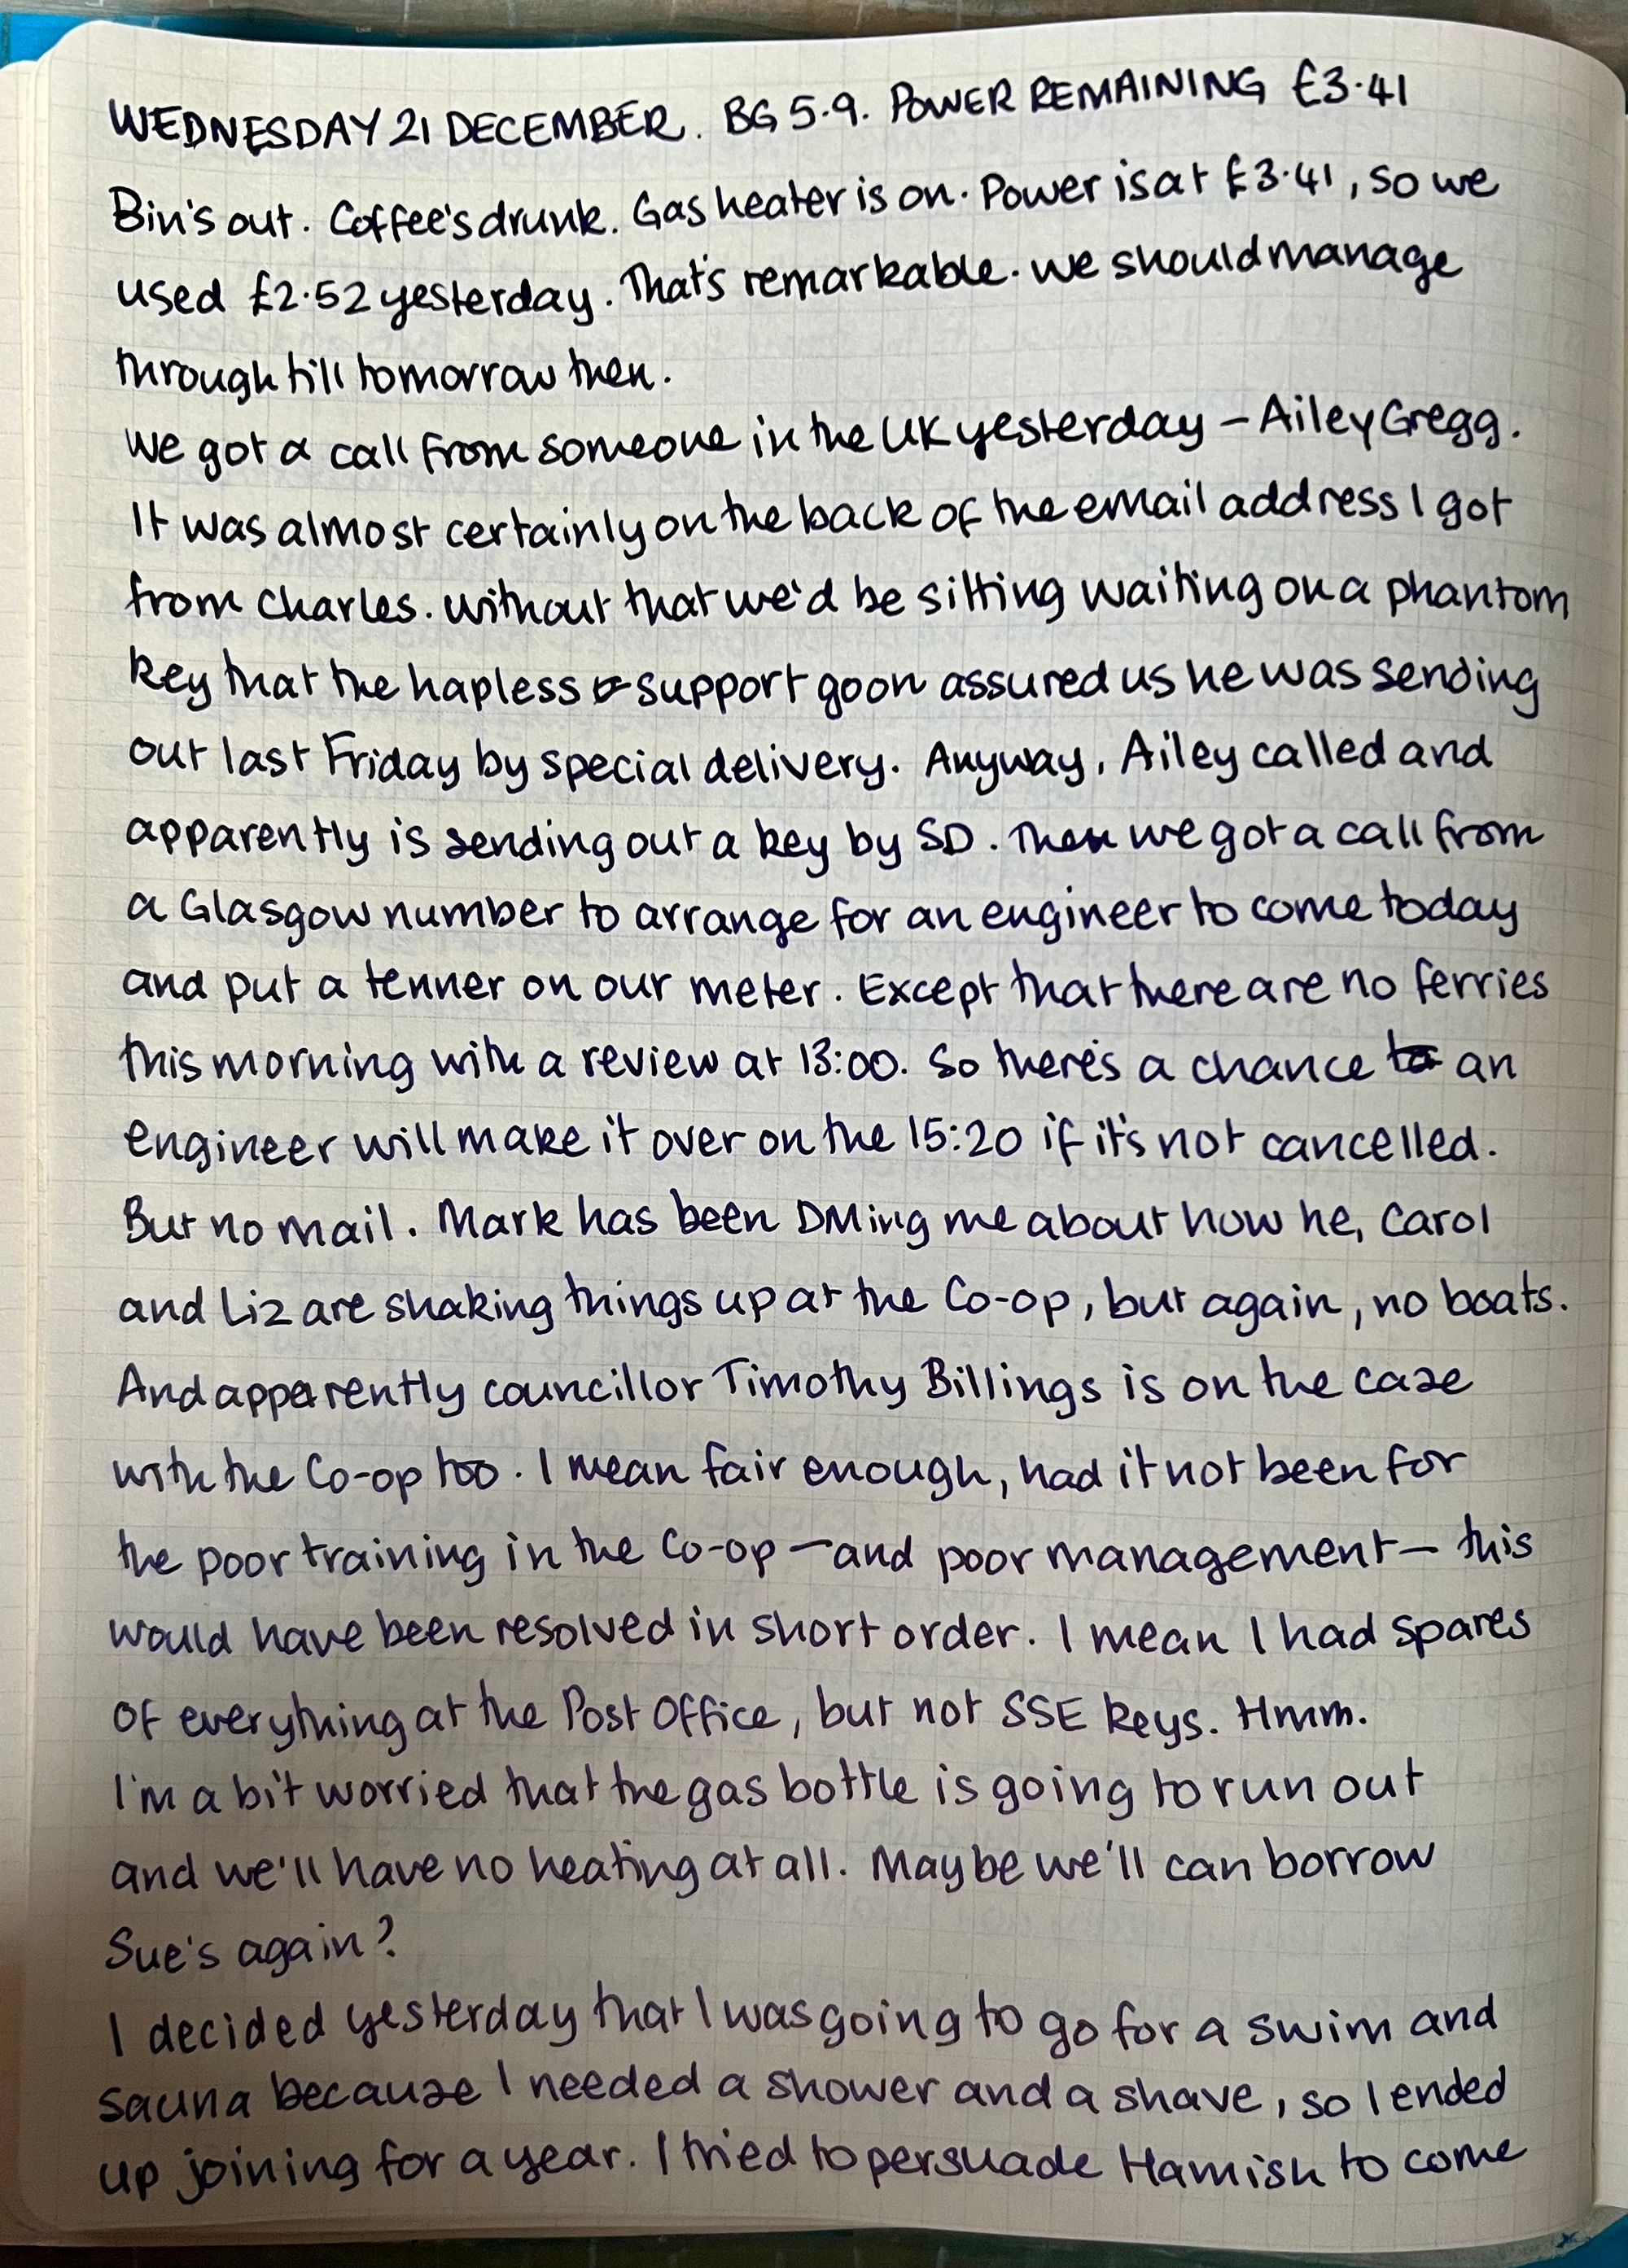 WEDNESDAY 21 DECEMBER. BG 5.9. POWER REMAINING £3.41
Bin's out. Coffee's drunk. Gas heater is on. Power is at £3.41, so we
used £2.52 yesterday. That's remarkable. We should manage
through till tomorrow then.
We got a call from someone in the UK yesterday – Ailey Gregg.
It was almost certainly on the back of the email address I got
from Charles. Without that we'd be sitting waiting on a phantom
key that the hapless support goon assured us he was sending
out last Friday by special delivery. Anyway, Ailey called and
apparently is sending out a key by SD. Then we got a call from
a Glasgow number to arrange for an engineer to come today
and put a tenner on our meter. Except that there are no ferries
this morning with a review at 13:00. So there's a chance to an
engineer will make it over on the 15:20 if it's not cancelled.
But no mail. Mark has been DMing me about how he, Carol
and Liz are shaking things up at the Co-op, but again, no boats.
And apparently councillor Timothy Billings is on the case
with the Co-op too. I mean fair enough, had it not been for
the poor training in the Co-op – and poor management – this
would have been resolved in short order. I mean I had spares
of everything at the Post Office, but not SSE keys. Hmm.
I'm a bit worried that the gas bottle is going to run out
and we'll have no heating at all. Maybe we'll can borrow
Sue's again?
I decided yesterday that I was going to go for a swim and
sauna because I needed a shower and a shave, so I ended
up joining for a year. I tried to persuade Hamish to come